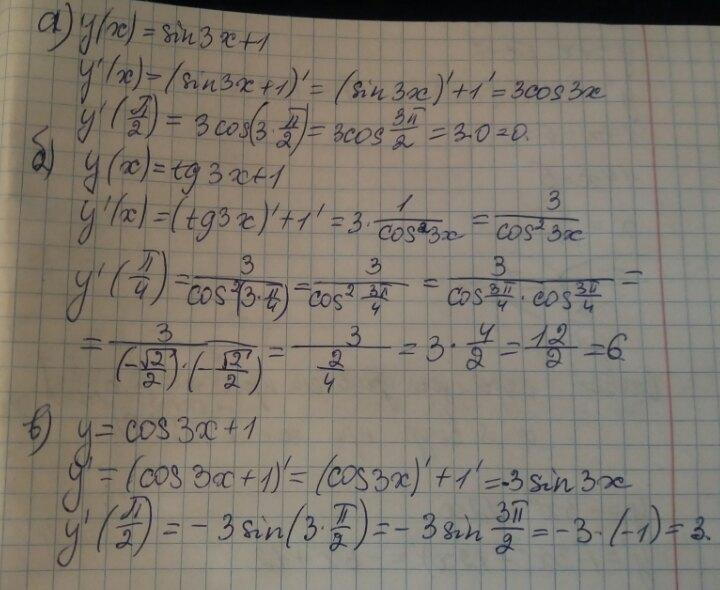 а) y(x) = sin3x+1
y'(x) = (sin3x+1)' = (sin3x)'+1' = 3cos3x
y'(π/2) = 3cos(3·π/2) = 3cos 3π/2 = 3·0=0.
б) y(x) = tg3x+1
y'(x) = (tg3x)'+1' = 3·1/cos²3x = 3/cos²3x
y'(π/4) = 3/cos²(3·π/4) = 3/cos² 3π/4 = 3/cos 3π/4 · cos 3π/4 =
= 3/(-√2/2)·(-√2/2) = 3/2/4 = 3·4/2 = 12/2 = 6
в) y = cos3x+1
y' = (cos3x+1)' = (cos3x)'+1' = -3sin3x
y'(π/2) = -3sin(3·π/2) = -3sin 3π/2 = -3·(-1) = 3.